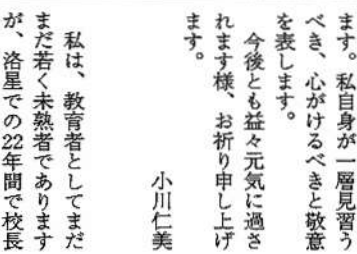 ます。私自身が一層見習う
べき、心がけるべきと敬意
を表します。
今後とも益々元気に過さ
れます様、お祈り申し上げ
ます。
小川仁美
私は、教育者としてまだ
まだ若く未熟者であります
が、洛星での22年間で校長